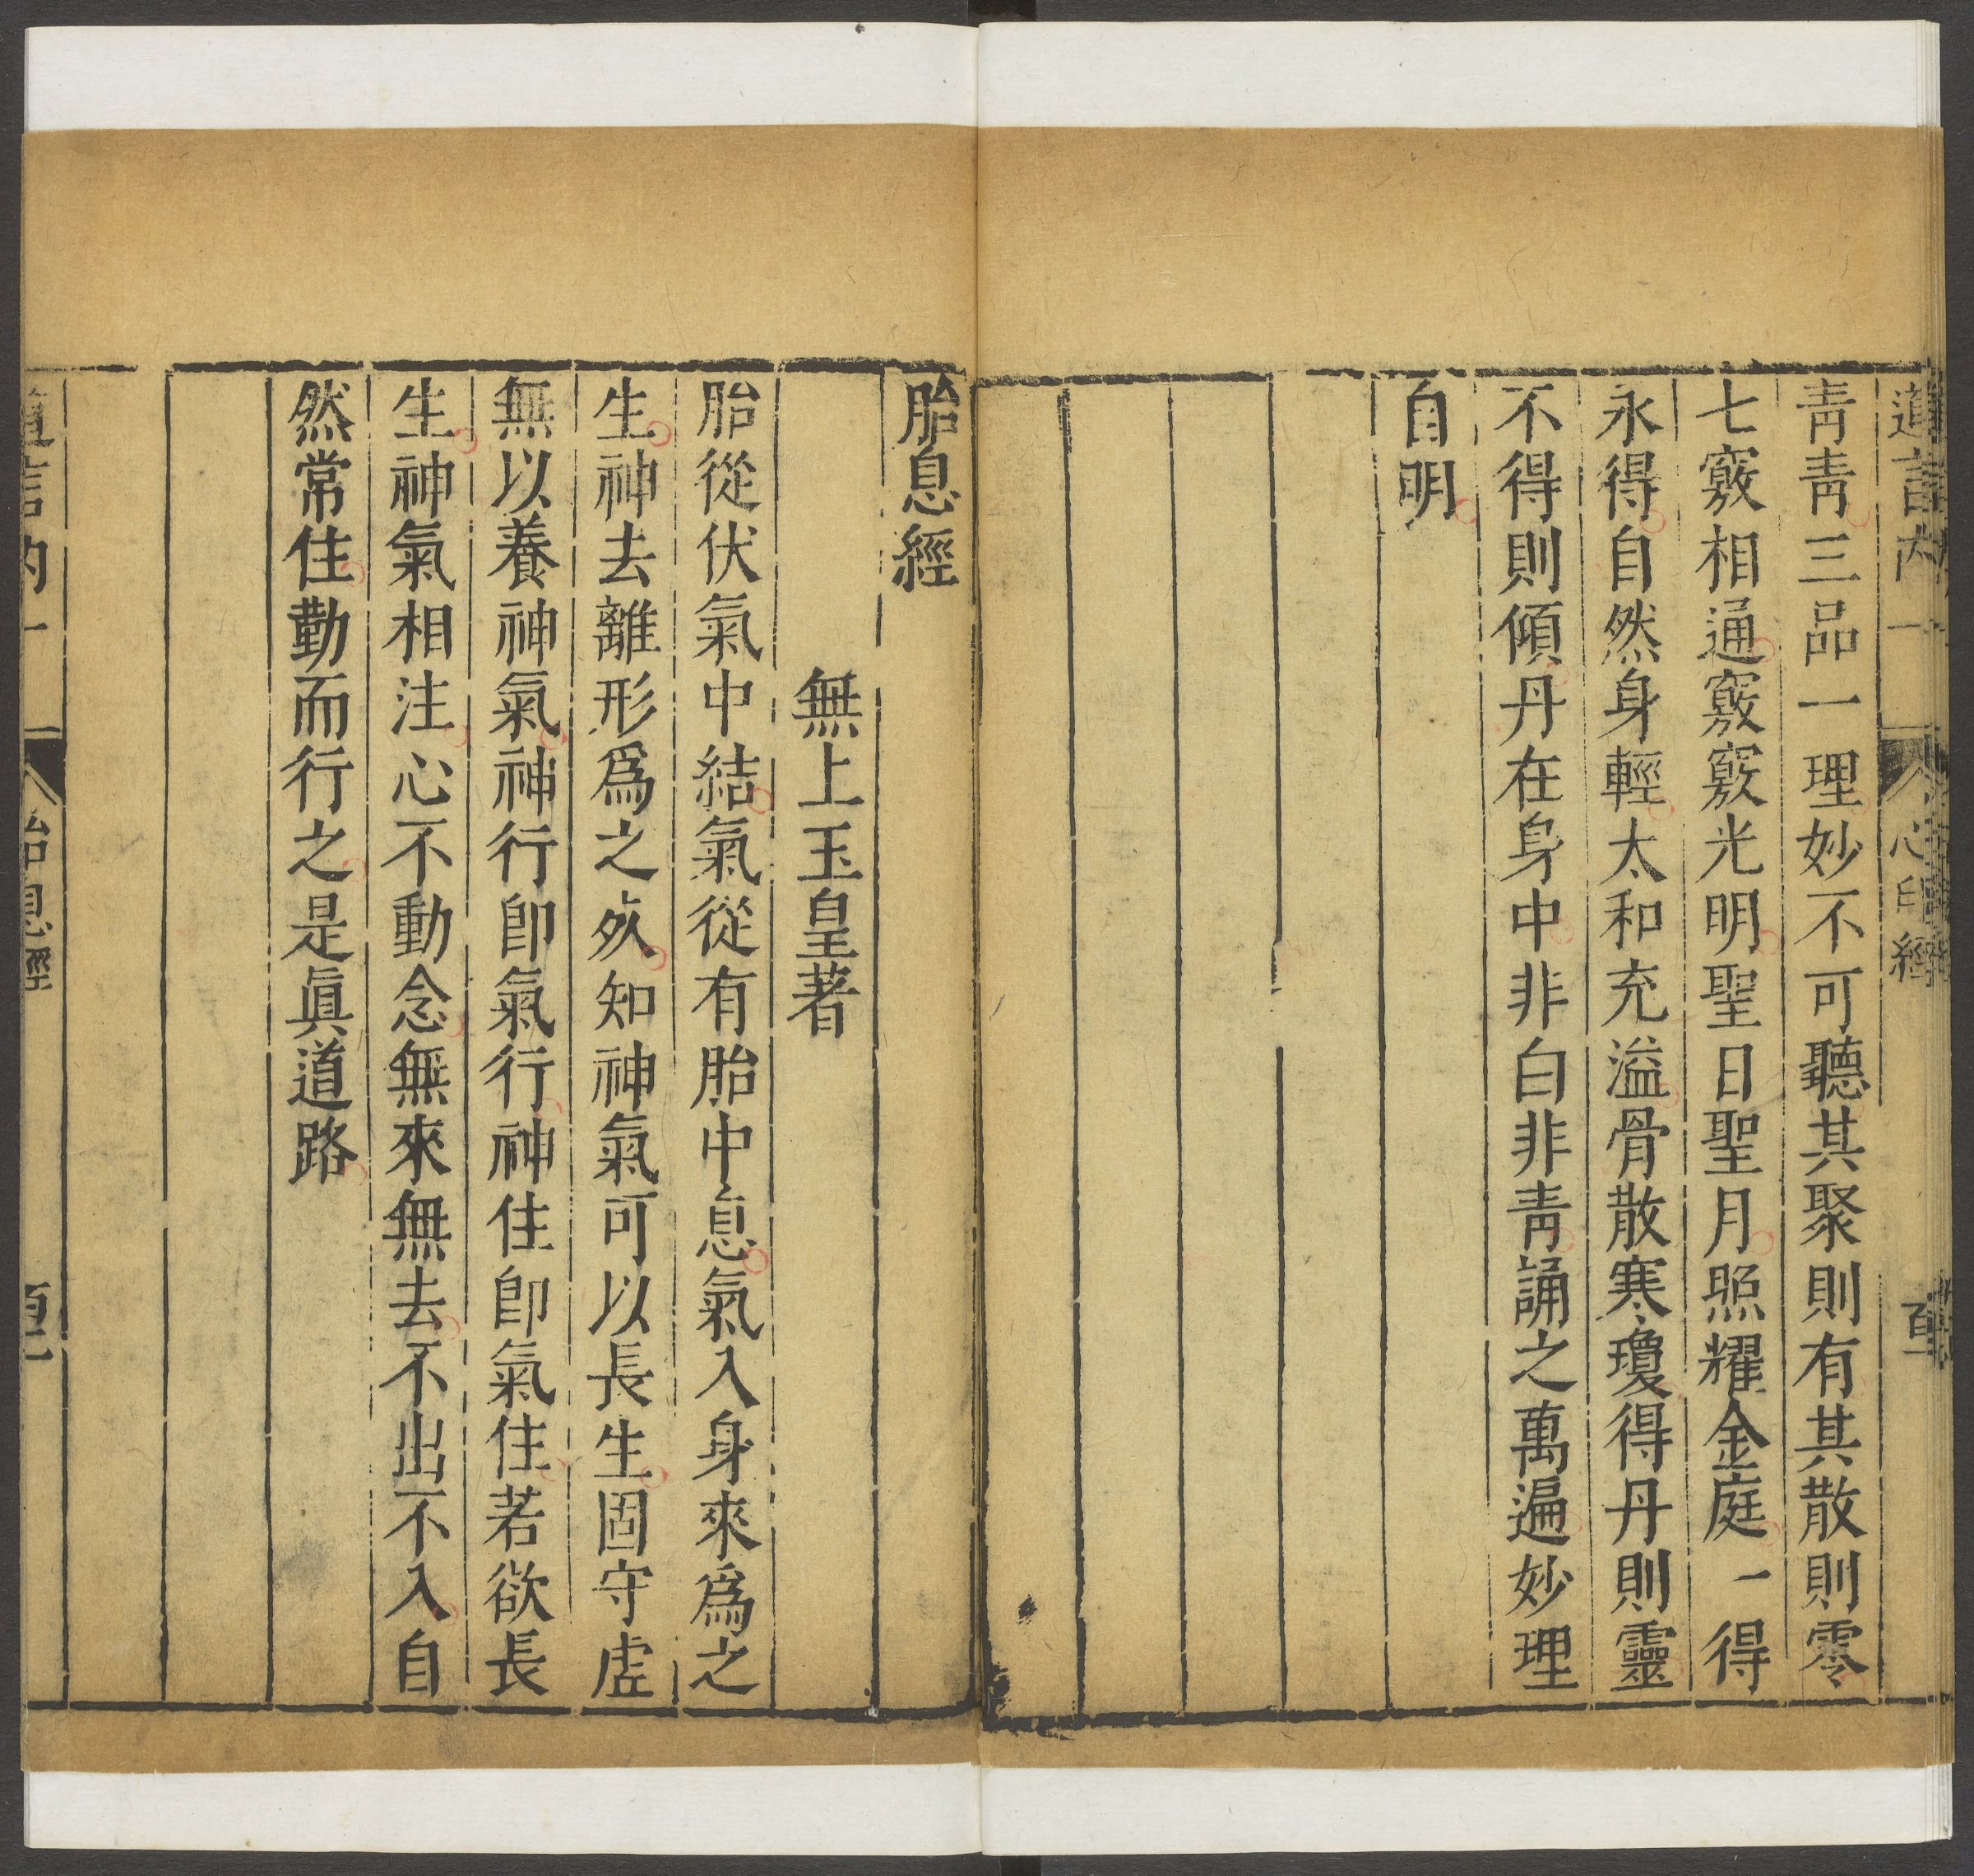 道言內一 心印經 百一
青青三品一理妙不可聽其聚則有其散則零
七竅相通竅竅光明聖日聖月照耀金庭一得
永得自然身輕太和充溢骨散寒瓊得丹則靈
不得則傾丹在身中非白非青誦之萬遍妙理
自明
胎息經
無上玉皇著
胎從伏氣中結氣從有胎中息氣入身來爲之
生神去離形爲之死知神氣可以長生固守虛
無以養神氣神行卽氣行神住卽氣住若欲長
生神氣相注心不動念無來無去不出不入自
然常住勤而行之是眞道路
道言內一 胎息經